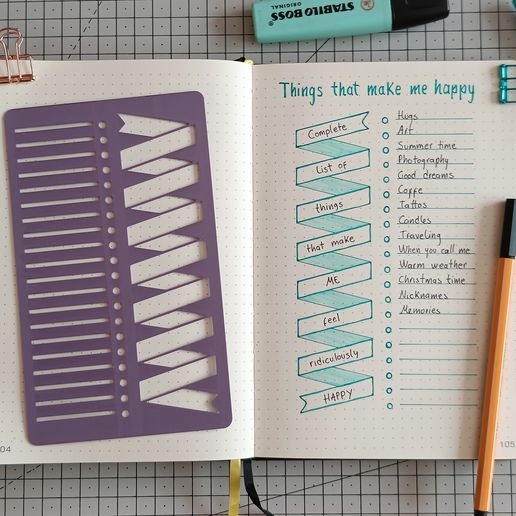 STABILO BOSS
ORIGINAL
Things that make me happy
Complete
List of
things
that make
ME
feel
ridiculously
HAPPY
Hugs
Art
Summer time
Photography
Good dreams
Coffe
Tattos
Candles
Traveling
When you call me
Warm weather
Christmas time
Nicknames
Memories
04
105